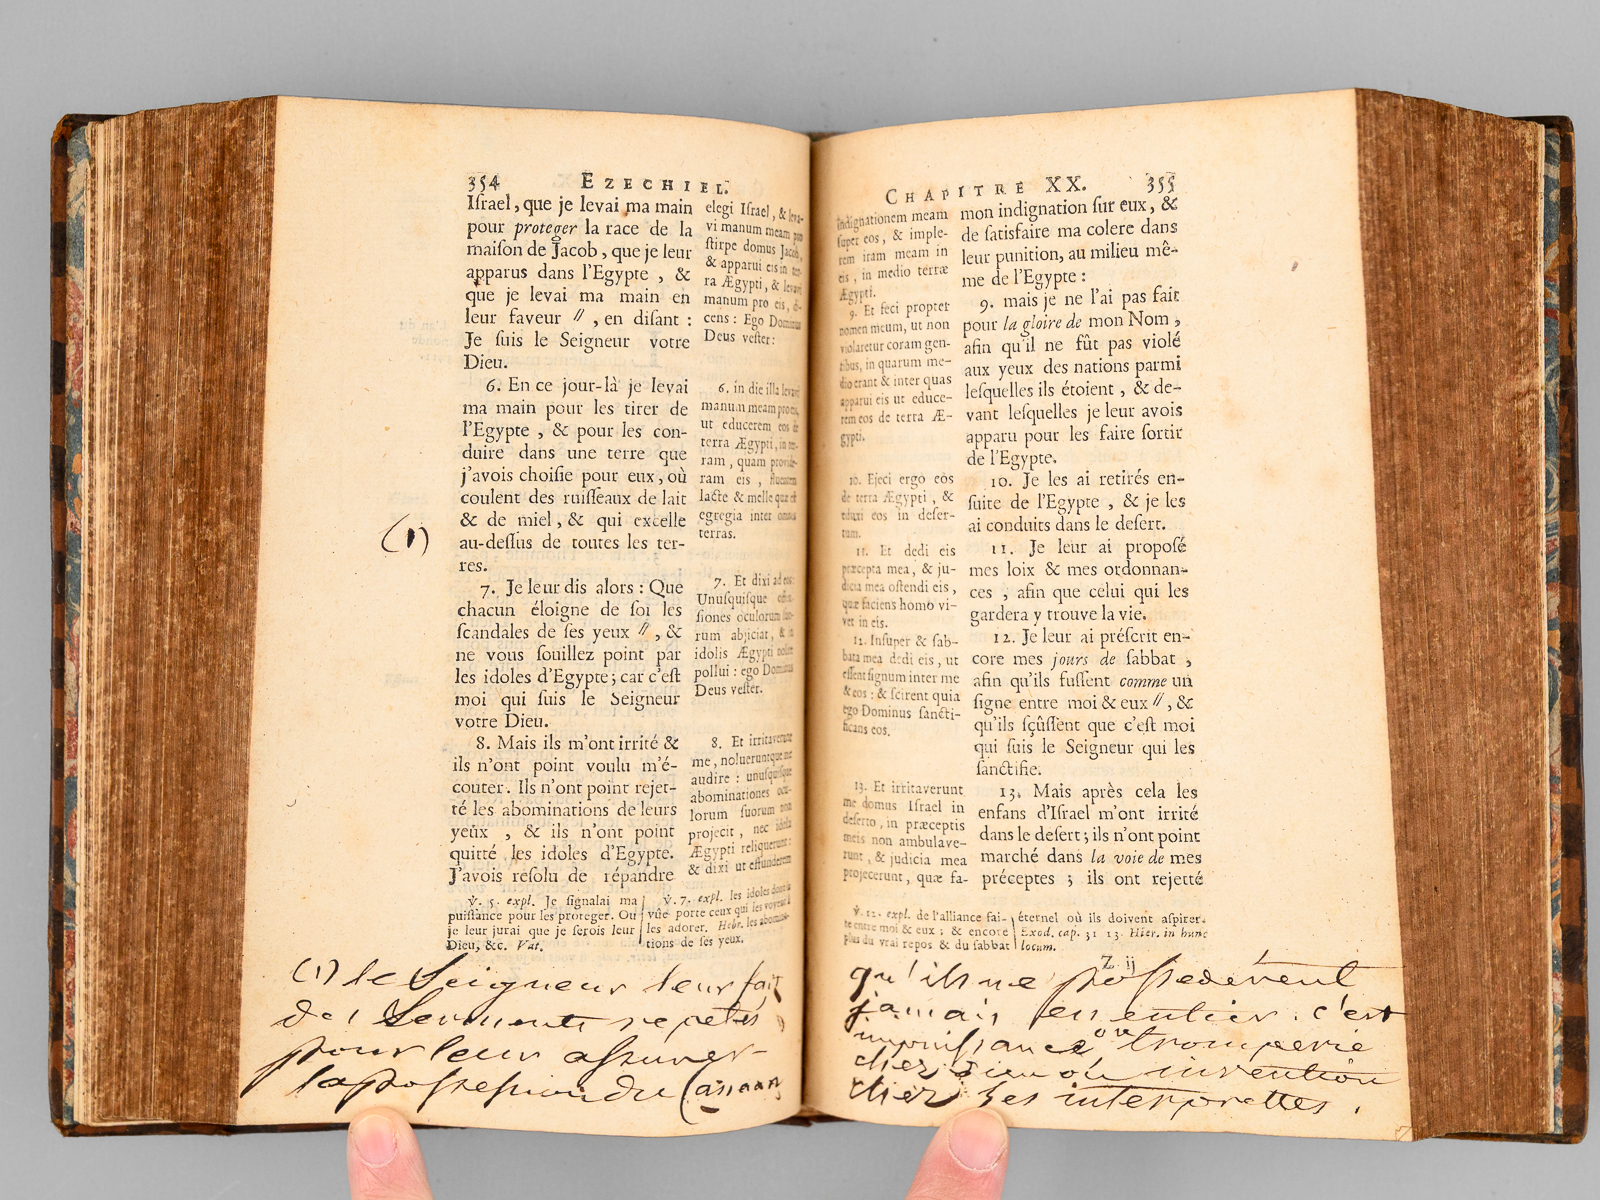 354 EZECHIEL.
Israel, que je levai ma main
pour proteger la race de la
maison de Jacob, que je leur
apparus dans l'Egypte, &
que je levai ma main en
leur faveur //, en disant :
Je suis le Seigneur votre
Dieu.
6. En ce jour-là je levai
ma main pour les tirer de
l'Egypte, & pour les con-
duire dans une terre que
j'avois choisie pour eux, où
coulent des ruisseaux de lait
& de miel, & qui excelle
au-dessus de toutes les ter-
res.
(1)
7. Je leur dis alors : Que
chacun éloigne de soi les
scandales de ses yeux //, &
ne vous souillez point par
les idoles d'Egypte; car c'est
moi qui suis le Seigneur
votre Dieu.
8. Mais ils m'ont irrité &
ils n'ont point voulu m'é-
couter. Ils n'ont point rejet-
té les abominations de leurs
yeux, & ils n'ont point
quitté les idoles d'Egypte.
J'avois résolu de répandre
elegi Israel, & leva-
vi manum meam pro
stirpe domus Jacob,
& apparui eis in ter-
ra Ægypti, & levavi
manum pro eis, di-
cens : Ego Dominus
Deus vester :
6. in die illa levavi
manum meam pro eis,
ut educerem eos de
terra Ægypti, in ter-
ram, quam provide-
ram eis, fluentem
lacte & melle quæ est
egregia inter omnes
terras.
7. Et dixi ad eos :
Unusquisque offen-
siones oculorum suo-
rum abjiciat, & in
idolis Ægypti nolite
pollui : ego Dominus
Deus vester.
8. Et irritaverunt
me, nolueruntque me
audire : unusquisque
abominationes ocu-
lorum suorum non
projecit, nec idola
Ægypti reliquerunt :
& dixi ut effunderem
℣. 5. expl. Je signalai ma
puissance pour les proteger. Ou
je leur jurai que je serois leur
Dieu, &c. Vat.
℣. 7. expl. les idoles dont la
vûe porte ceux qui les voyent à
les adorer. Hebr. les abomina-
tions de ses yeux.
(1) le Seigneur leur fait
des Serments repetés
pour leur assurer
la possession du Canaan
CHAPITRE XX. 355
indignationem meam
super eos, & imple-
rem iram meam in
eis, in medio terræ
Ægypti.
9. Et feci propter
nomen meum, ut non
violaretur coram gen-
tibus, in quarum me-
dio erant & inter quas
apparui eis ut educe-
rem eos de terra Æ-
gypti.
10. Ejeci ergo eos
de terra Ægypti, &
eduxi eos in deser-
tum.
11. Et dedi eis
præcepta mea, & ju-
dicia mea ostendi eis,
quæ faciens homo vi-
vet in eis.
12. Insuper & sab-
bata mea dedi eis, ut
essent signum inter me
& eos : & scirent quia
ego Dominus sancti-
ficans eos.
13. Et irritaverunt
me domus Israel in
deserto, in præceptis
meis non ambulave-
runt, & judicia mea
projecerunt, quæ fa-
mon indignation sur eux, &
de satisfaire ma colere dans
leur punition, au milieu mê-
me de l'Egypte :
9. mais je ne l'ai pas fait
pour la gloire de mon Nom,
afin qu'il ne fût pas violé
aux yeux des nations parmi
lesquelles ils étoient, & de-
vant lesquelles je leur avois
apparu pour les faire sortir
de l'Egypte.
10. Je les ai retirés en-
suite de l'Egypte, & je les
ai conduits dans le desert.
11. Je leur ai proposé
mes loix & mes ordonnan-
ces, afin que celui qui les
gardera y trouve la vie.
12. Je leur ai préscrit en-
core mes jours de sabbat,
afin qu'ils fussent comme un
signe entre moi & eux //, &
qu'ils sçûssent que c'est moi
qui suis le Seigneur qui les
sanctifie.
13. Mais après cela les
enfans d'Israel m'ont irrité
dans le desert; ils n'ont point
marché dans la voie de mes
préceptes; ils ont rejetté
℣. 12. expl. de l'alliance fai-
te entre moi & eux : & encore
plus du vrai repos & du sabbat
éternel où ils doivent aspirer.
Exod. cap. 31 13. Hier. in hunc
locum.
Z ij
qu'ils ne possederent
jamais en entier. c'est
impuissance ou tromperie
chez Dieu ou invention
chez ses interprettes.